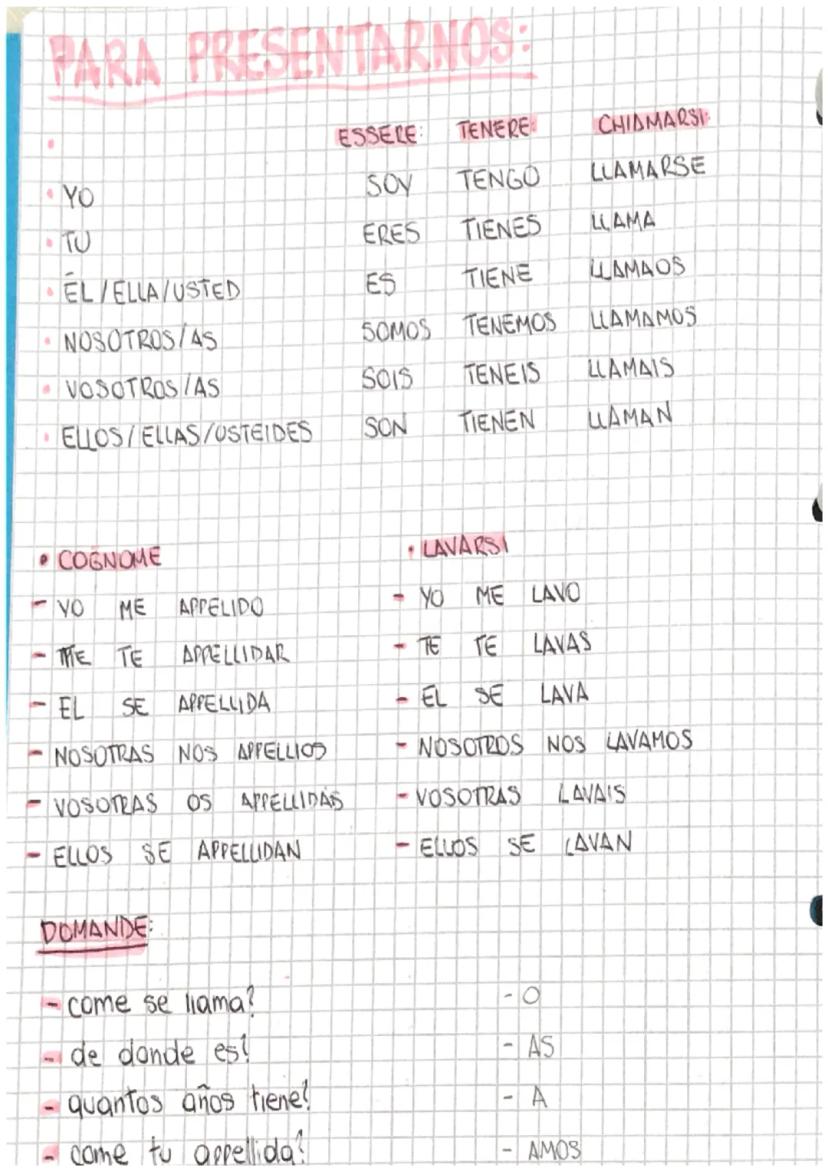 PARA PRESENTARNOS:
ESSERE: TENERE: CHIAMARSI:
YO SOY TENGO LLAMARSE
TU ERES TIENES LLAMA
ÉL/ELLA/USTED ES TIENE LLAMAOS
NOSOTROS/AS SOMOS TENEMOS LLAMAMOS
VOSOTROS/AS SOIS TENEIS LLAMAIS
ELLOS/ELLAS/USTEIDES SON TIENEN LLAMAN
• COGNOME • LAVARSI
- YO ME APPELIDO - YO ME LAVO
- TE TE APPELLIDAR - TE TE LAVAS
- EL SE APPELLIDA - EL SE LAVA
- NOSOTRAS NOS APPELLIOS - NOSOTROS NOS LAVAMOS
- VOSOTRAS OS APPELLIDAS - VOSOTRAS LAVAIS
- ELLOS SE APPELLIDAN - ELLOS SE LAVAN
DOMANDE:
- come se llama? - O
- de donde es? - AS
- quantos años tiene? - A
- come tu appellida? - AMOS